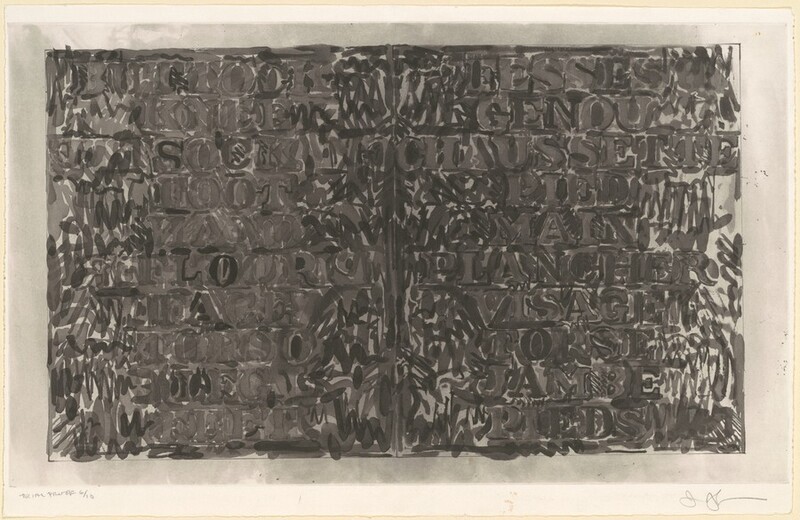 BUTTOCKS FESSES
KNEE GENOU
SOCK CHAUSSETTE
FOOT PIED
HAND MAIN
FLOOR PLANCHER
FACE VISAGE
TORSO TORSE
LEG JAMBE
FEET PIEDS
TRIAL PROOF